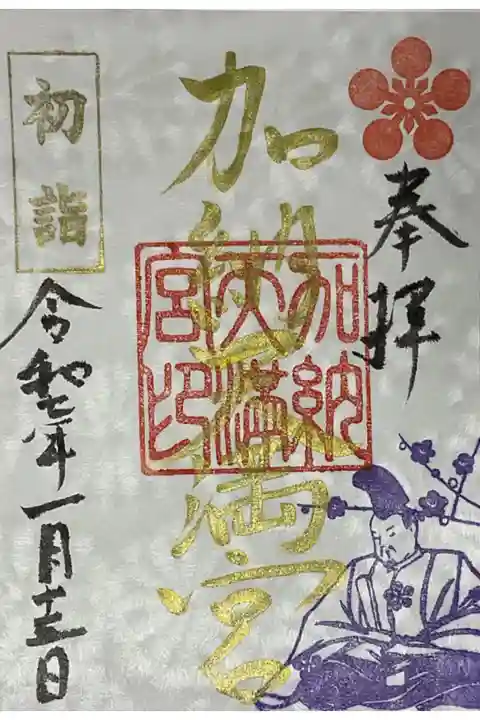 奉拝
加納天満宮
加納
天満
宮印
初詣
令和七年一月十 日